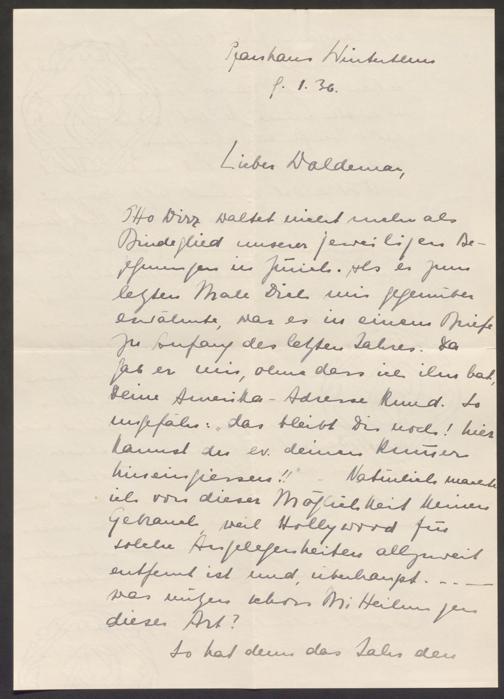 Pfarrhaus Winterthur
9. 1. 36.
Lieber Waldemar,
Otto Dirz waltet nicht mehr als
Bindeglied unserer jeweiligen Be-
gegnungen in Zürich. Als er zum
letzten Male Dich mir gegenüber
erwähnte, war es in einem Briefe
zu Anfang des letzten Jahres. Da
gab er mir, ohne dass ich ihn bat,
Deine Amerika-Adresse kund. So
ungefähr: „das bleibt Dir noch! hier
kannst du ev. deinen Kummer
hineingiessen!!" - Natürlich machte
ich von dieser Möglichkeit keinen
Gebrauch, weil Hollywood für
solche Angelegenheiten allzuweit
entfernt ist und, überhaupt. . . . —
was nützen schon Mitteilungen
dieser Art?
So hat denn das Jahr den